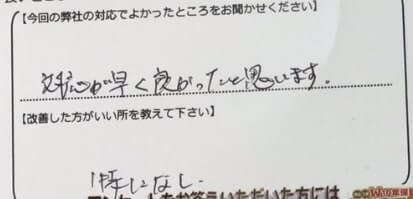 【今回の弊社の対応でよかったところをお聞かせください】
対応が早く良かったと思います。
【改善した方がいい所を教えて下さい】
特になし.
アンケートをお答えいただいた方には